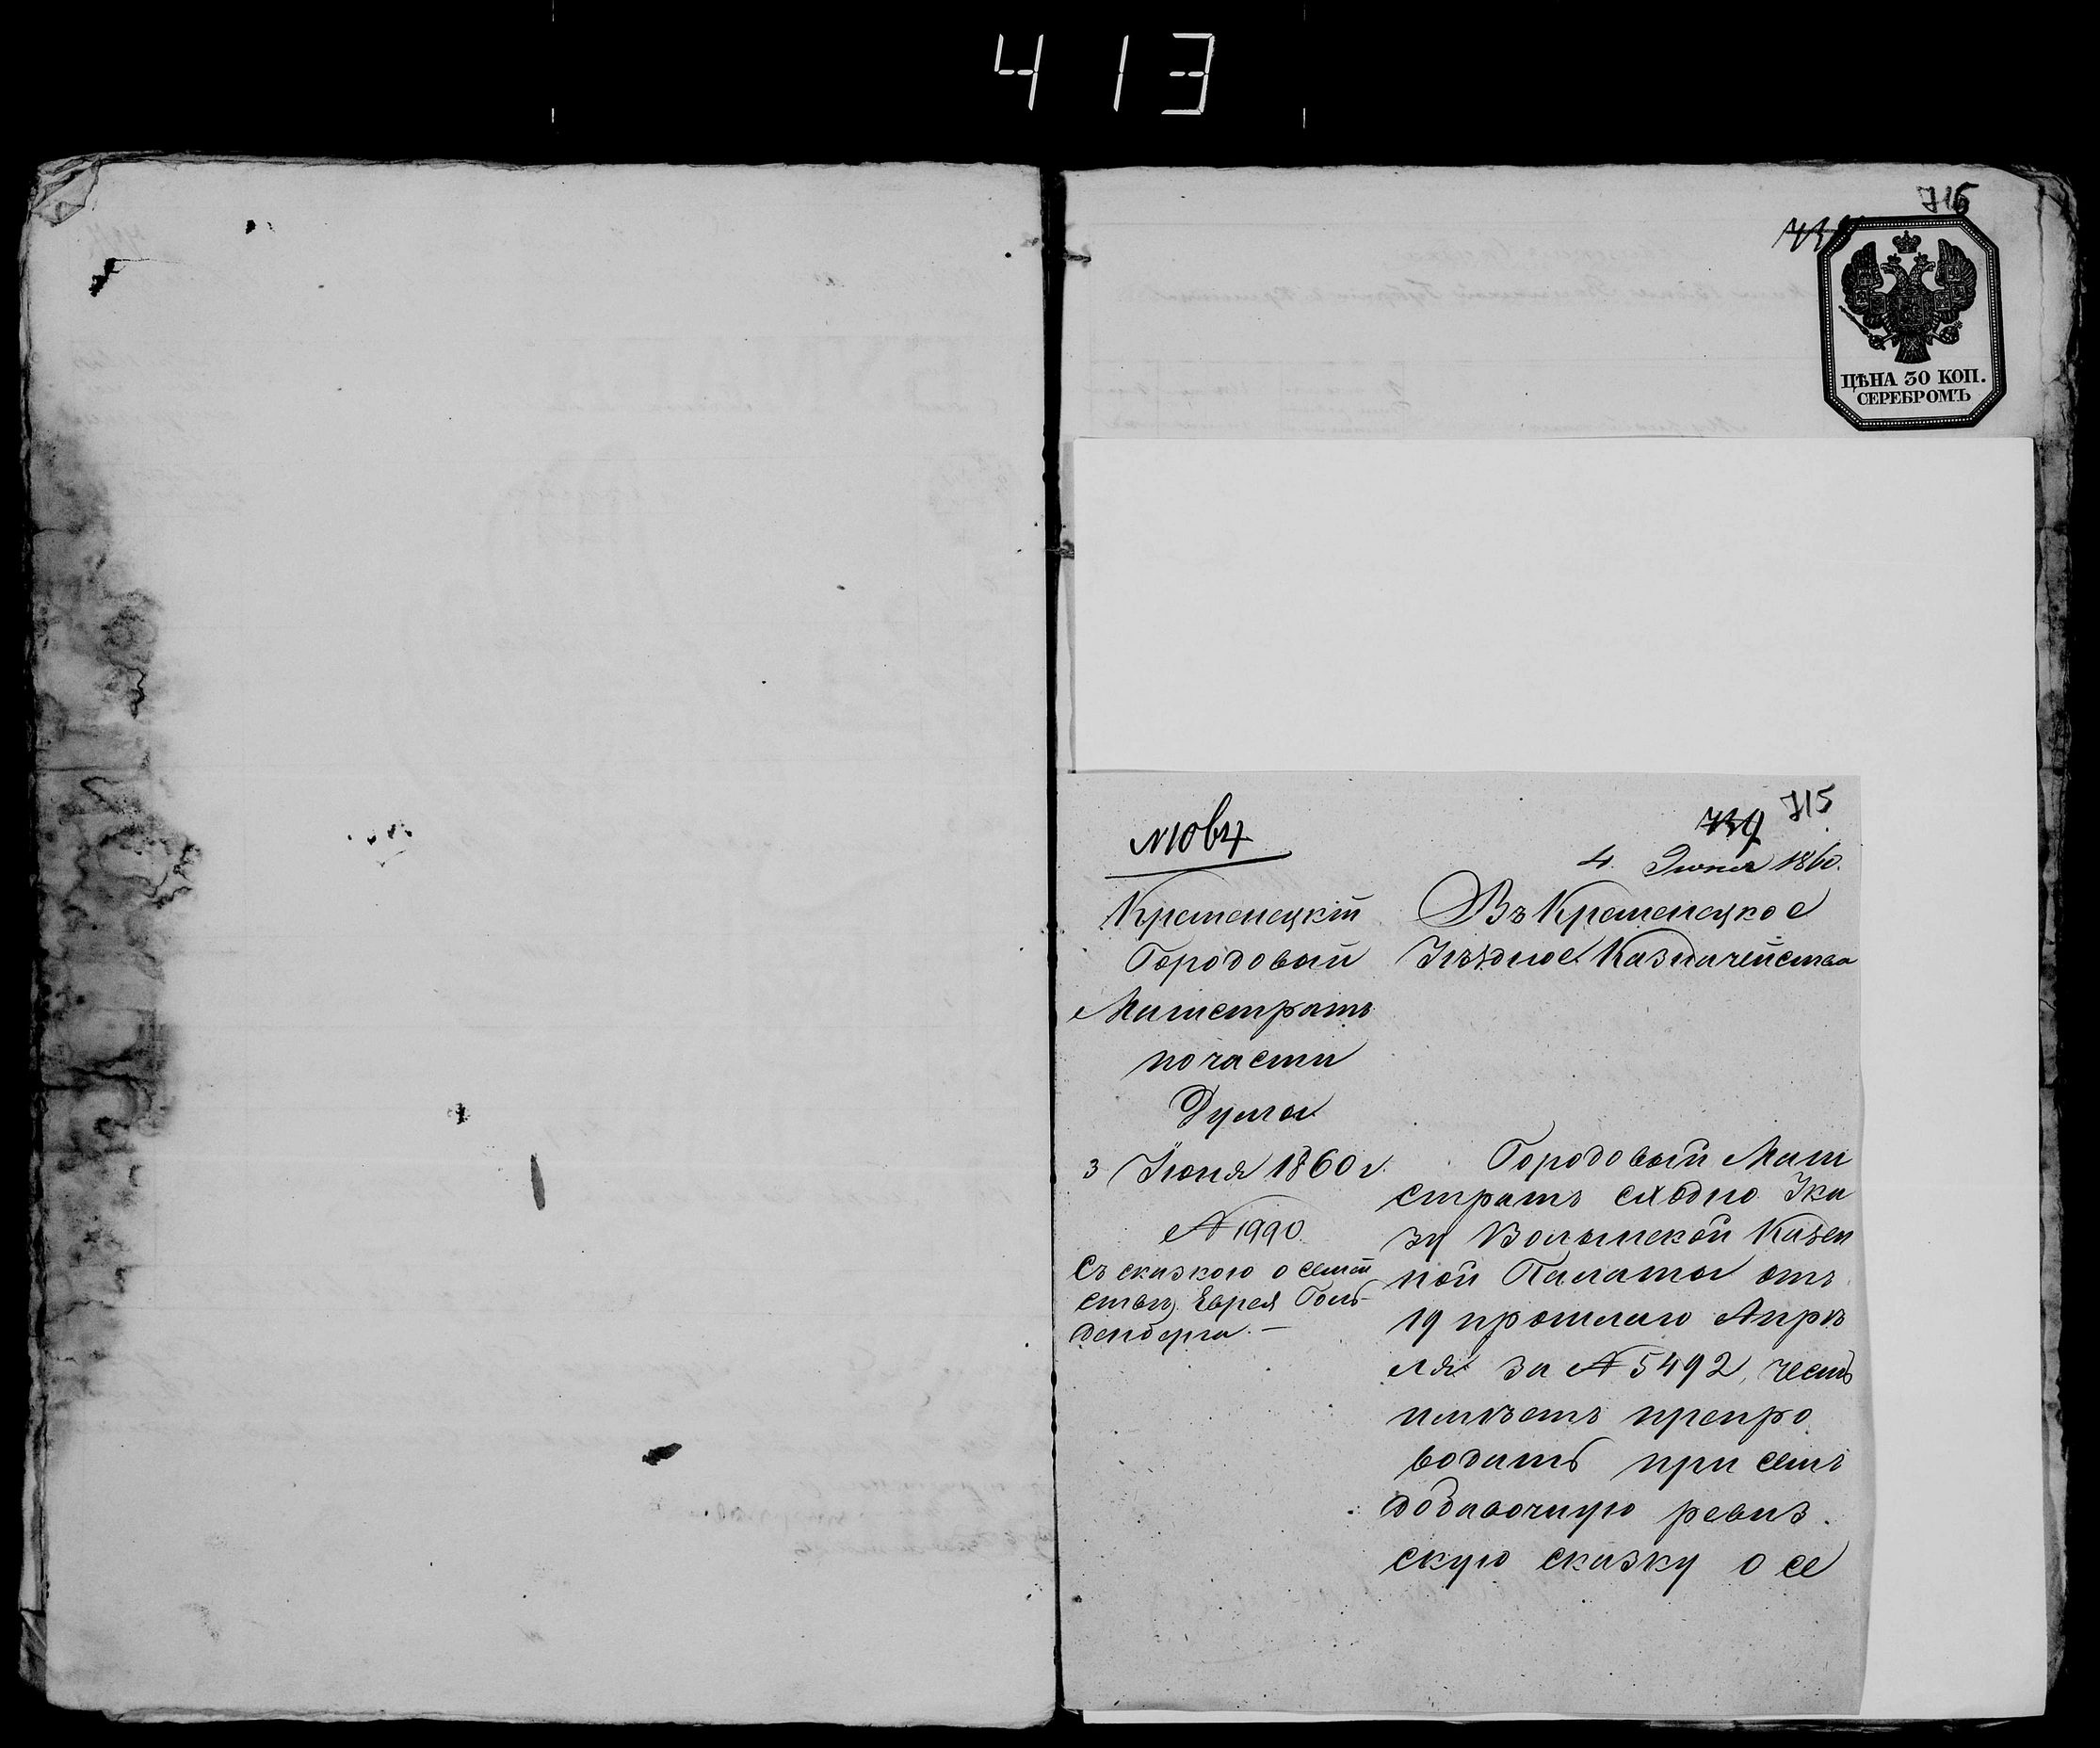 413
715
ЦѢНА 30 КОП.
СЕРЕБРОМЪ
715
4. Июня 1860.
Кременецкій
Городовый
Магистратъ
по части
Думы
3 Іюня 1860 г.
№ 1990.
Съ сказкою о семей
ствѣ Еврея Голь
денберга. —
Въ Кременецкое
Уѣздное Казначейство
Городовый Маги
стратъ сходно Ука
зу Волынской Казен
ной Палаты отъ
19 прошлаго Апрѣ
ля за № 5492, честь
имѣетъ препро
водить при семъ
добавочную ревиз
скую сказку о се